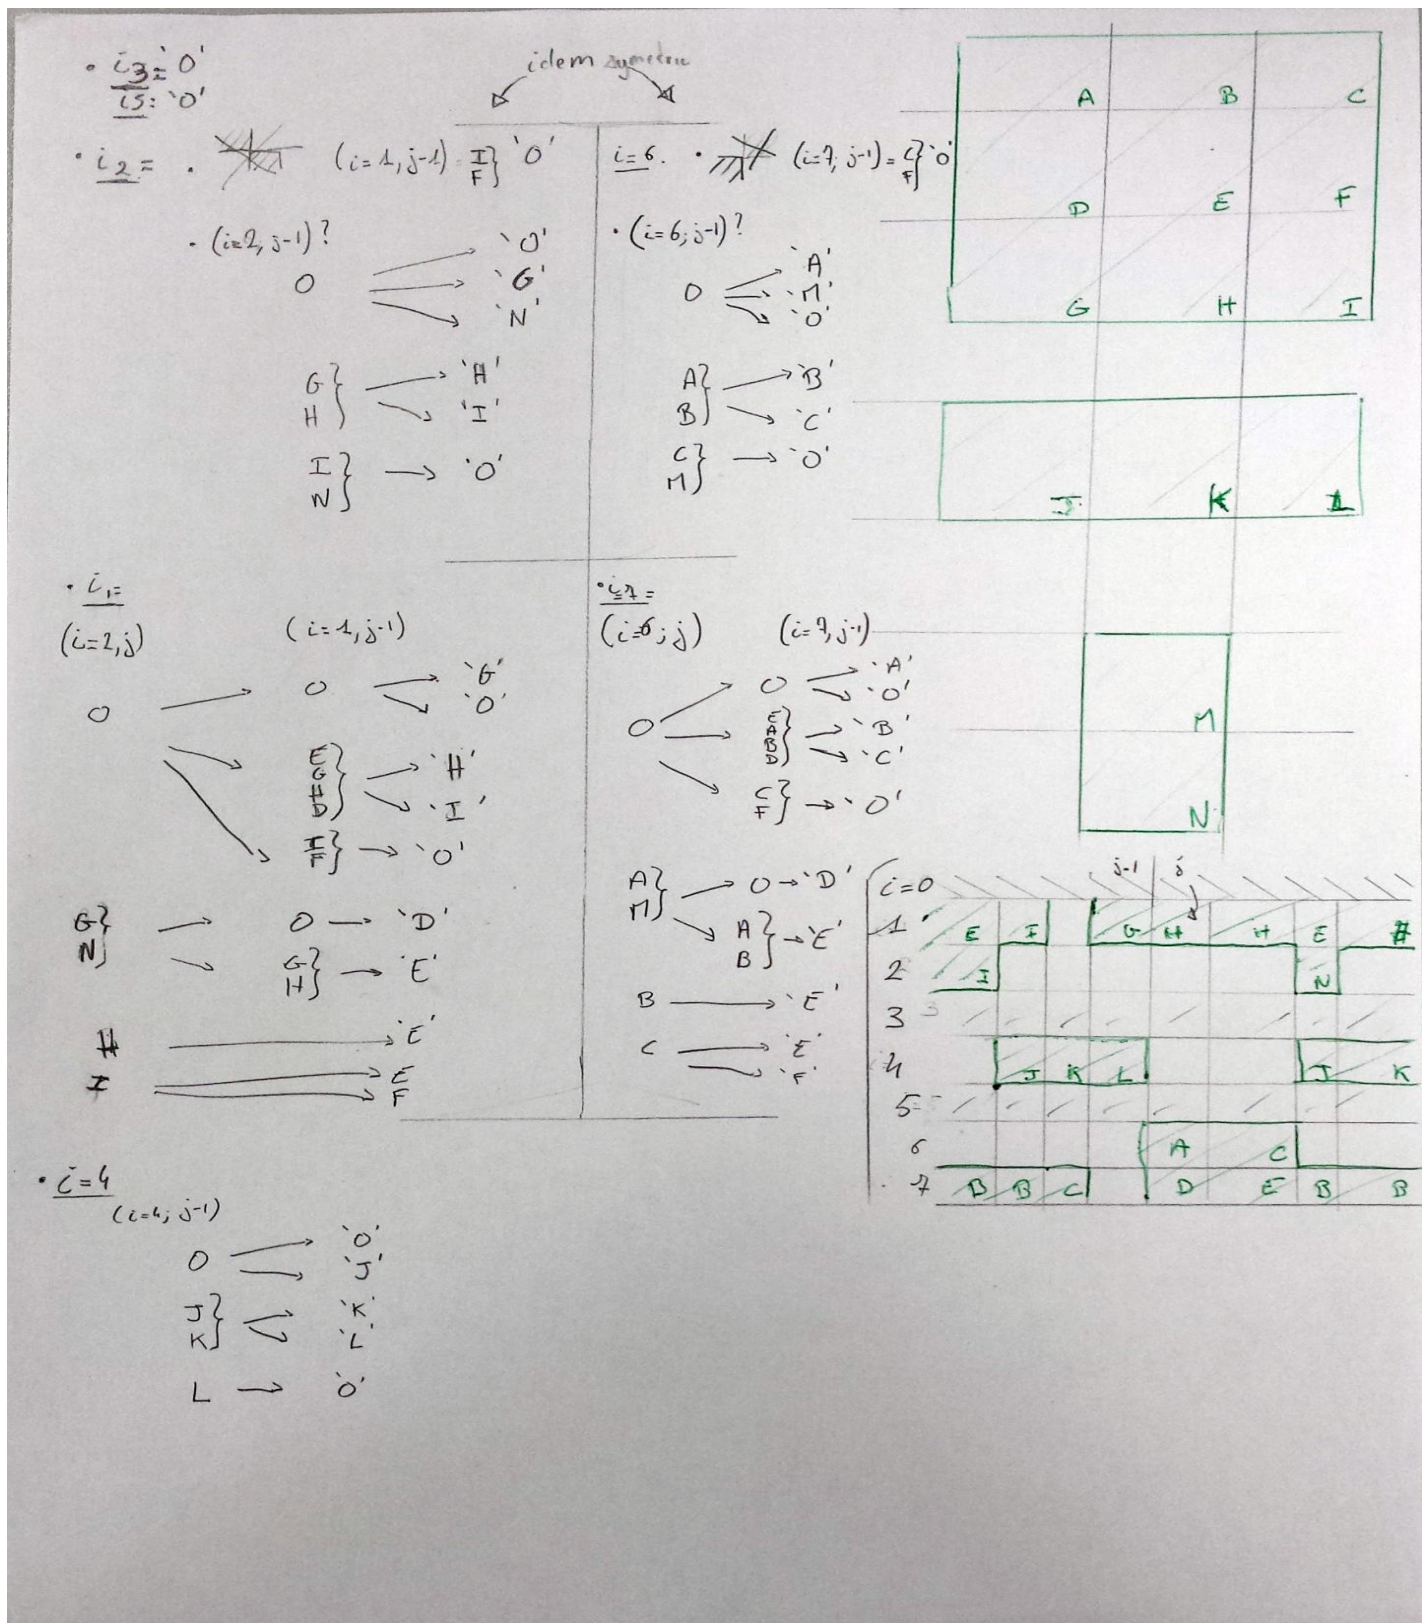 • i3='O'
i5: 'O'
idem symetric
• i2 = • (i=1, j-1) = I F } 'O'
• (i=2, j-1)?
O → 'O'
'G'
'N'
G H } → 'H'
'I'
I N } → 'O'
i=6. • (i=7, j-1) = C F } 'O'
• (i=6; j-1)?
O → 'A'
'M'
'O'
A B } → 'B'
'C'
C M } → 'O'
• i1=
(i=2, j) (i=1, j-1)
O → O → 'G'
'O'
E G H D } → 'H'
'I'
I F } → 'O'
G N } → O → 'D'
G H } → 'E'
H → 'E'
I → E
F
• i7=
(i=6; j) (i=7, j-1)
O → O → 'A'
'O'
E A B D } → 'B'
'C'
C F } → 'O'
A M } → O → 'D'
A B } → 'E'
B → 'E'
C → 'E'
'F'
• i=4
(i=4; j-1)
O → 'O'
'J'
J K } → 'K'
'L'
L → 'O'
A B C
D E F
G H I
J K L
M
N
j-1 j
i=0
1 E I G H H E H
2 I N
3
4 J K L J K
5
6 A C
7 B B C D E B B